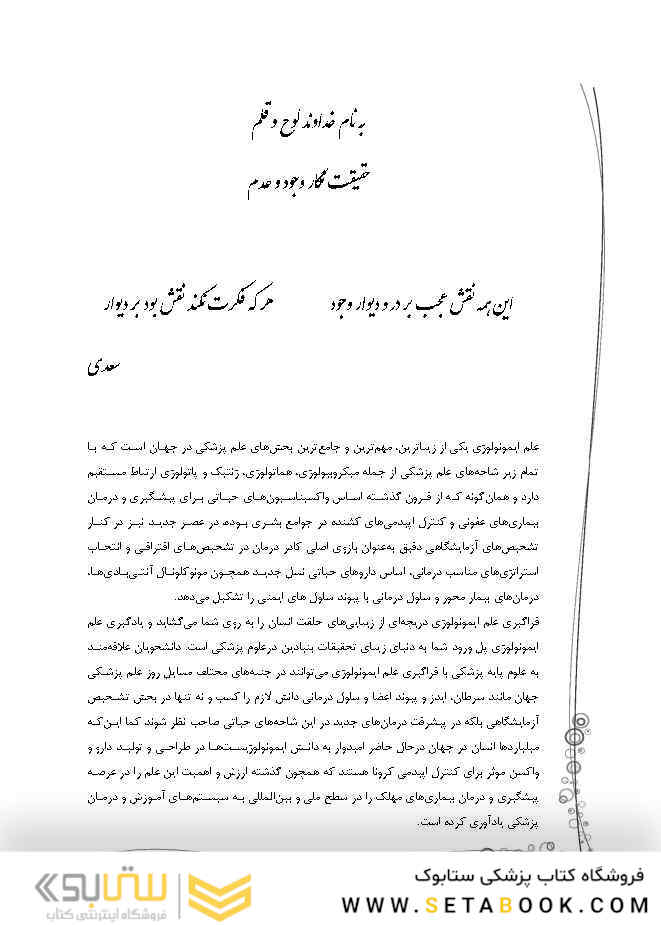 به نام خداوند لوح و قلم
حقیقت نگار وجود و عدم
این همه نقش عجب بر در و دیوار وجود هر که فکرت نکند نقش بود بر دیوار
سعدی
علم ایمونولوژی یکی از زیباترین، مهم‌ترین و جامع‌ترین بخش‌های علم پزشکی در جهان است که با
تمام زیر شاخه‌های علم پزشکی از جمله میکروبیولوژی، هماتولوژی، ژنتیک و پاتولوژی ارتباط مستقیم
دارد و همان‌گونه که از قرون گذشته اساس واکسیناسیون‌های حیاتی برای پیشگیری و درمان
بیماری‌های عفونی و کنترل اپیدمی‌های کشنده در جوامع بشری بوده، در عصر جدید نیز در کنار
تشخیص‌های آزمایشگاهی دقیق به‌عنوان بازوی اصلی کادر درمان در تشخیص‌های افتراقی و انتخاب
استراتژی‌های مناسب درمانی، اساس داروهای حیاتی نسل جدید همچون مونوکلونال آنتی‌بادی‌ها،
درمان‌های بیمار محور و سلول درمانی یا پیوند سلول های ایمنی را تشکیل می‌دهد.
فراگیری علم ایمونولوژی دریچه‌ای از زیبایی‌های خلقت انسان را به روی شما می‌گشاید و یادگیری علم
ایمونولوژی پل ورود شما به دنیای زیبای تحقیقات بنیادین درعلوم پزشکی است. دانشجویان علاقه‌مند
به علوم پایه پزشکی با فراگیری علم ایمونولوژی می‌توانند در جنبه‌های مختلف مسایل روز علم پزشکی
جهان مانند سرطان، ایدز و پیوند اعضا و سلول درمانی دانش لازم را کسب و نه تنها در بخش تشخیص
آزمایشگاهی بلکه در پیشرفت درمان‌های جدید در این شاخه‌های حیاتی صاحب نظر شوند کما این‌که
میلیاردها انسان در جهان درحال حاضر امیدوار به دانش ایمونولوژیست‌ها در طراحی و تولید دارو و
واکسن موثر برای کنترل اپیدمی کرونا هستند که همچون گذشته ارزش و اهمیت این علم را در عرصه
پیشگیری و درمان بیماری‌های مهلک را در سطح ملی و بین‌المللی به سیستم‌های آموزش و درمان
پزشکی یادآوری کرده است.
فروشگاه کتاب پزشکی ستابوک
WWW.SETABOOK.COM
ستابوک
فروشگاه اینترنتی کتاب